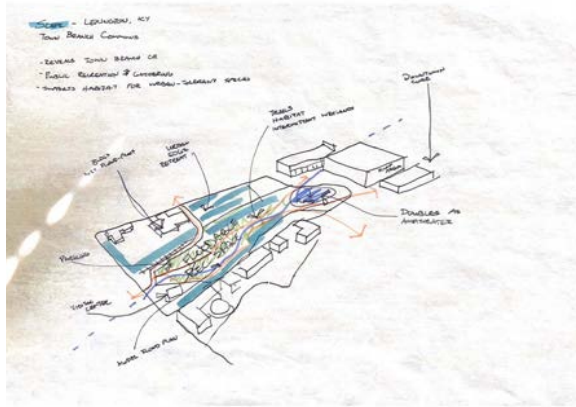 - Lexington, KY
Town Branch Commons
- Reveals Town Branch Cr
- Public Recreation & Gathering
- Supports Habitat for Urban-Tolerant Species
Downtown
Trails
Habitat
Intermittent Wetlands
Urban
Edge
Retreat
Doubles as
Amphitheater
Parking
Floodable
Rec Space
Center
Flood Plain